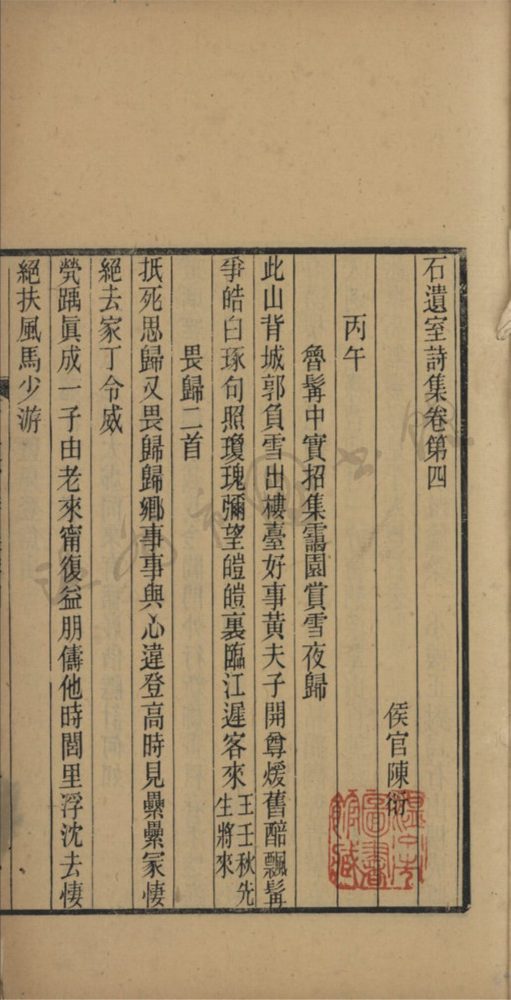 石遺室詩集卷第四
侯官陳衍
丙午
魯髯中實招集靄園賞雪夜歸
此山背城郭負雪出樓臺好事黃夫子開尊煖舊醅飄髯
爭皓白琢句照瓊瑰彌望皚皚裏臨江遲客來
王壬秋先
生將來
畏歸二首
抵死思歸又畏歸歸鄉事事與心違登高時見纍纍冢悽
絕去家丁令威
煢踽眞成一子由老來甯復益朋儔他時閭里浮沈去悽
絕扶風馬少游
圖書
館藏